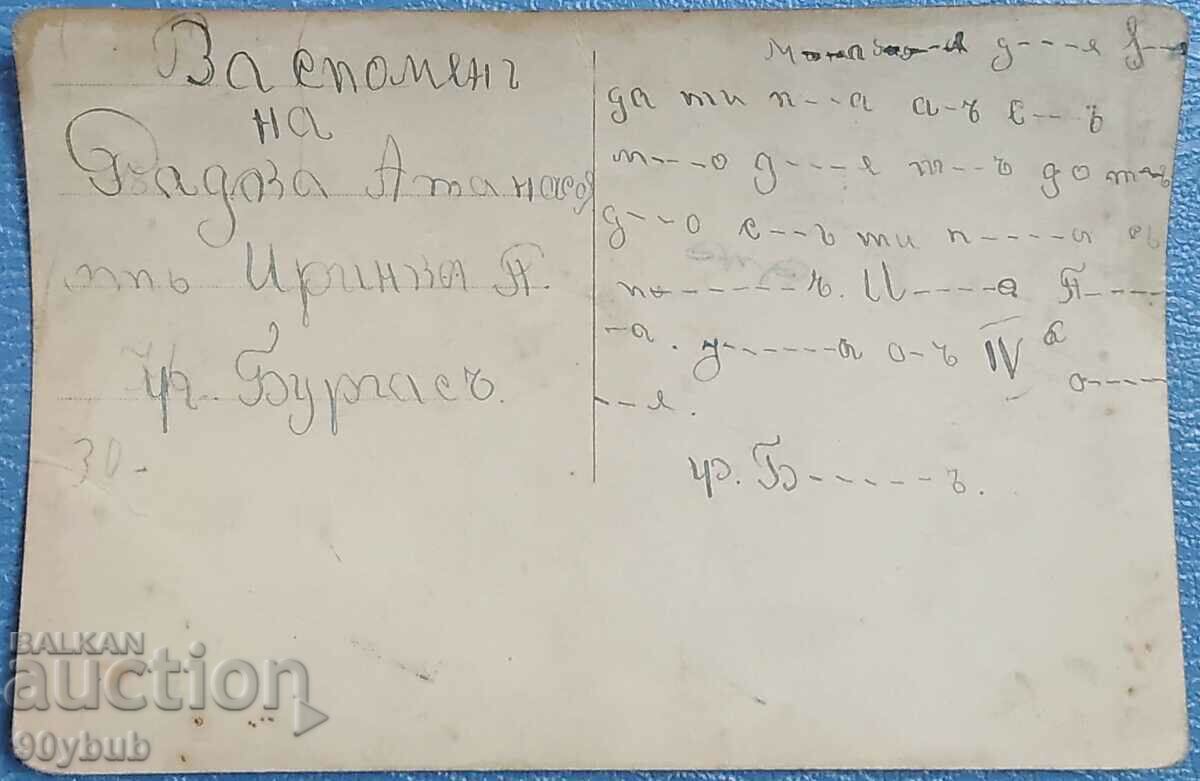 За споменъ
на
Радоза Атанасов
отъ Иринка П.
гр. Бургасъ.
30-
д---я
да ти п---а а-ъ с--ъ
м---о д---я т--ъ до
д---о с--ъ ти п----а
по-------ъ. И-----а П-----
-а. у------а о-ъ IV а
о-----
--я.
гр. Б------ъ.
BALKAN
auction
90ybub